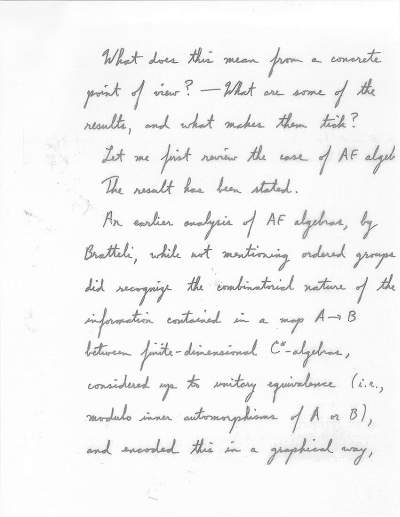 What does this mean from a concrete
point of view? — What are some of the
results, and what makes them tick?
Let me first review the case of AF algeb
The result has been stated.
An earlier analysis of AF algebras, by
Bratteli, while not mentioning ordered groups
did recognize the combinatorial nature of the
information contained in a map A→B
between finite-dimensional C*-algebras,
considered up to unitary equivalence (i.e.,
modulo inner automorphisms of A or B),
and encoded this in a graphical way,